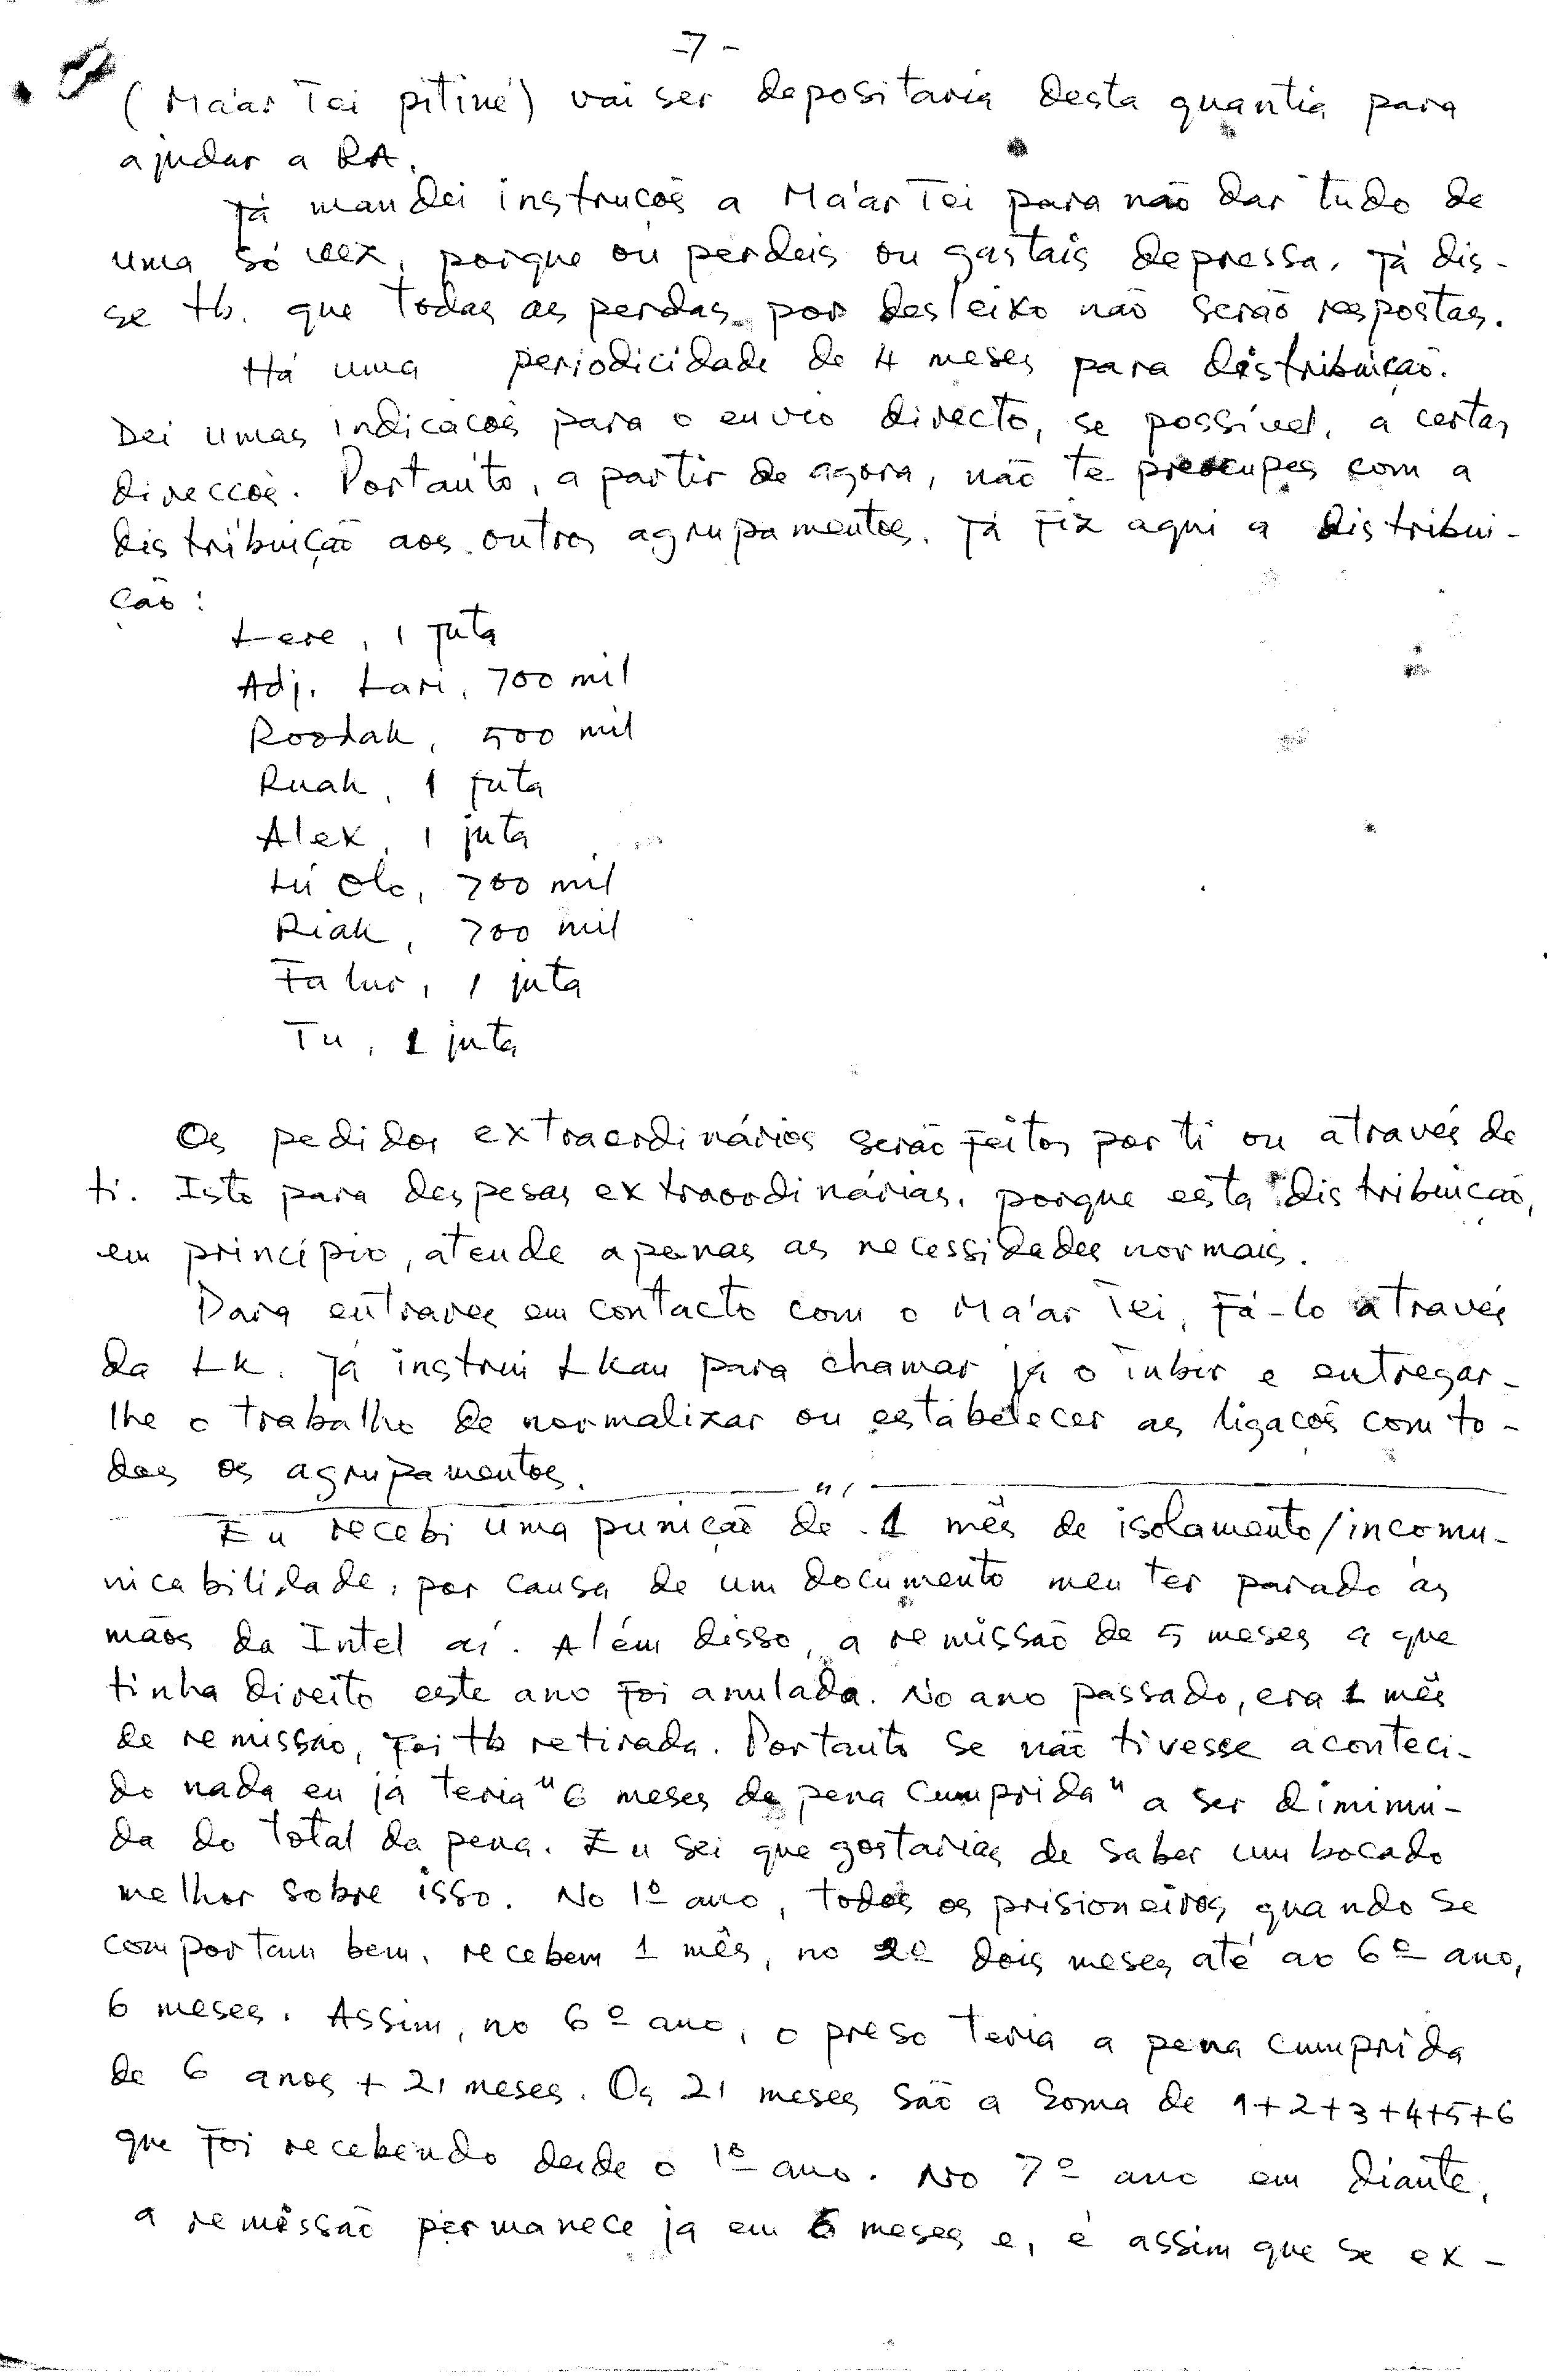 -7-
(Ma'ar Tei pitiné) vai ser depositaria desta quantia para
ajudar a RA.
Já mandei instrucoẽs a Ma'ar Tei para não dar tudo de
uma só vez, porque ou perdeis ou gastais depressa. Já dis-
se tb. que todas as perdas por desleixo não serão respostas.
Há uma periodicidade de 4 meses para distribuição.
Dei umas indicacoẽs para o envio directo, se possível, a certas
direccoẽs. Portanto, a partir de agora, não te preocupes com a
distribuição aos outros agrupamentos. Já fiz aqui a distribui-
ção:
Lere, 1 juta
Adj. Lari, 700 mil
Roodak, 500 mil
Ruak, 1 juta
Alex, 1 juta
Lú Olo, 700 mil
Riak, 700 mil
Falur, 1 juta
Tu, 1 juta
Os pedidos extraordinários serão feitos por ti ou através de
ti. Isto para despesas extraordinárias, porque esta distribuição,
em princípio, atende apenas as necessidades normais.
Para entrares em contacto com o Ma'ar Tei, fá-lo através
da LK. Já instrui Lkau para chamar já o Tubir e entregar-
lhe o trabalho de normalizar ou estabelecer as ligacoẽs com to-
dos os agrupamentos.
Eu recebi uma punição de 1 mês de isolamento/incomu-
nicabilidade, por causa de um documento meu ter parado às
mãos da Intel aí. Além disso, a remissão de 5 meses a que
tinha direito este ano foi anulada. No ano passado, era 1 mês
de remissão, foi tb retirada. Portanto se não tivesse aconteci-
do nada eu já teria "6 meses de pena cumprida" a ser diminui-
da do total da pena. Eu sei que gostarias de saber um bocado
melhor sobre isso. No 1º ano, todos os prisioneiros, quando se
comportam bem, recebem 1 mês, no 2º dois meses até ao 6º ano,
6 meses. Assim, no 6º ano, o preso teria a pena cumprida
de 6 anos + 21 meses. Os 21 meses são a soma de 1+2+3+4+5+6
que foi recebendo desde o 1º ano. No 7º ano em diante,
a remissão permanece já em 6 meses e, é assim que se ex-